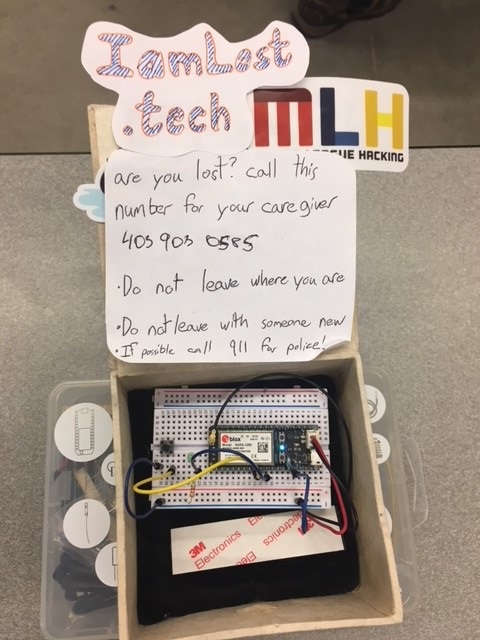 IamLost
.tech
MLH
GUE HACKING
are you lost? call this
number for your caregiver
403 903 0585
•Do not leave where you are
•Do not leave with someone new
•If possible call 911 for police!
ublox
3M
Electronics
3M
Electronics